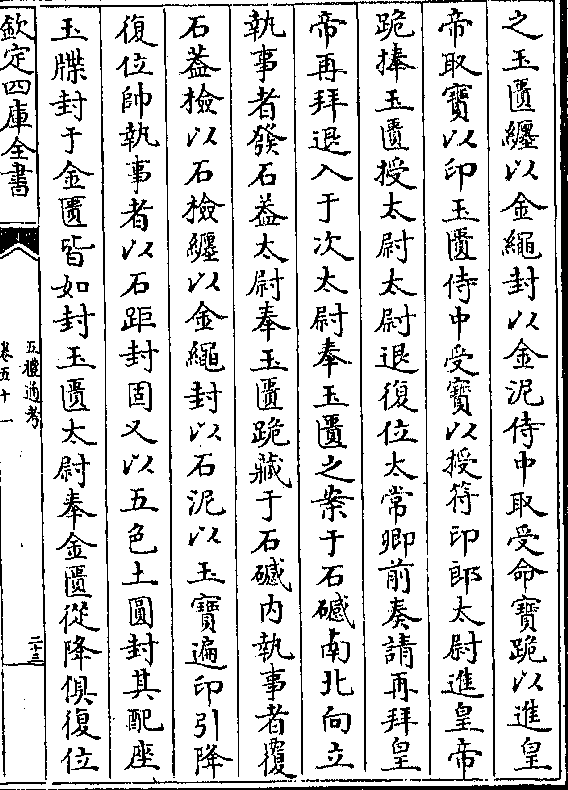 之玉匱纒以金繩封以金泥侍中取受命寶跪以進皇
帝取寶以印玉匱侍中受寶以授符印郎太尉進皇帝
跪捧玉匱授太尉太尉退復位太常卿前奏請再拜皇
帝再拜退入于次太尉奉玉匱之案于石䃭南北向立
執事者發石葢太尉奉玉匱跪藏于石䃭内執事者覆
石葢檢以石檢纒以金繩封以石泥以玉寶遍印引降
復位帥執事者以石距封固又以五色土圓封其配座
玉牒封于金匱皆如封玉匱太尉奉金匱從降俱復位
欽定四庫全書
五禮通考
卷五十一
二十三